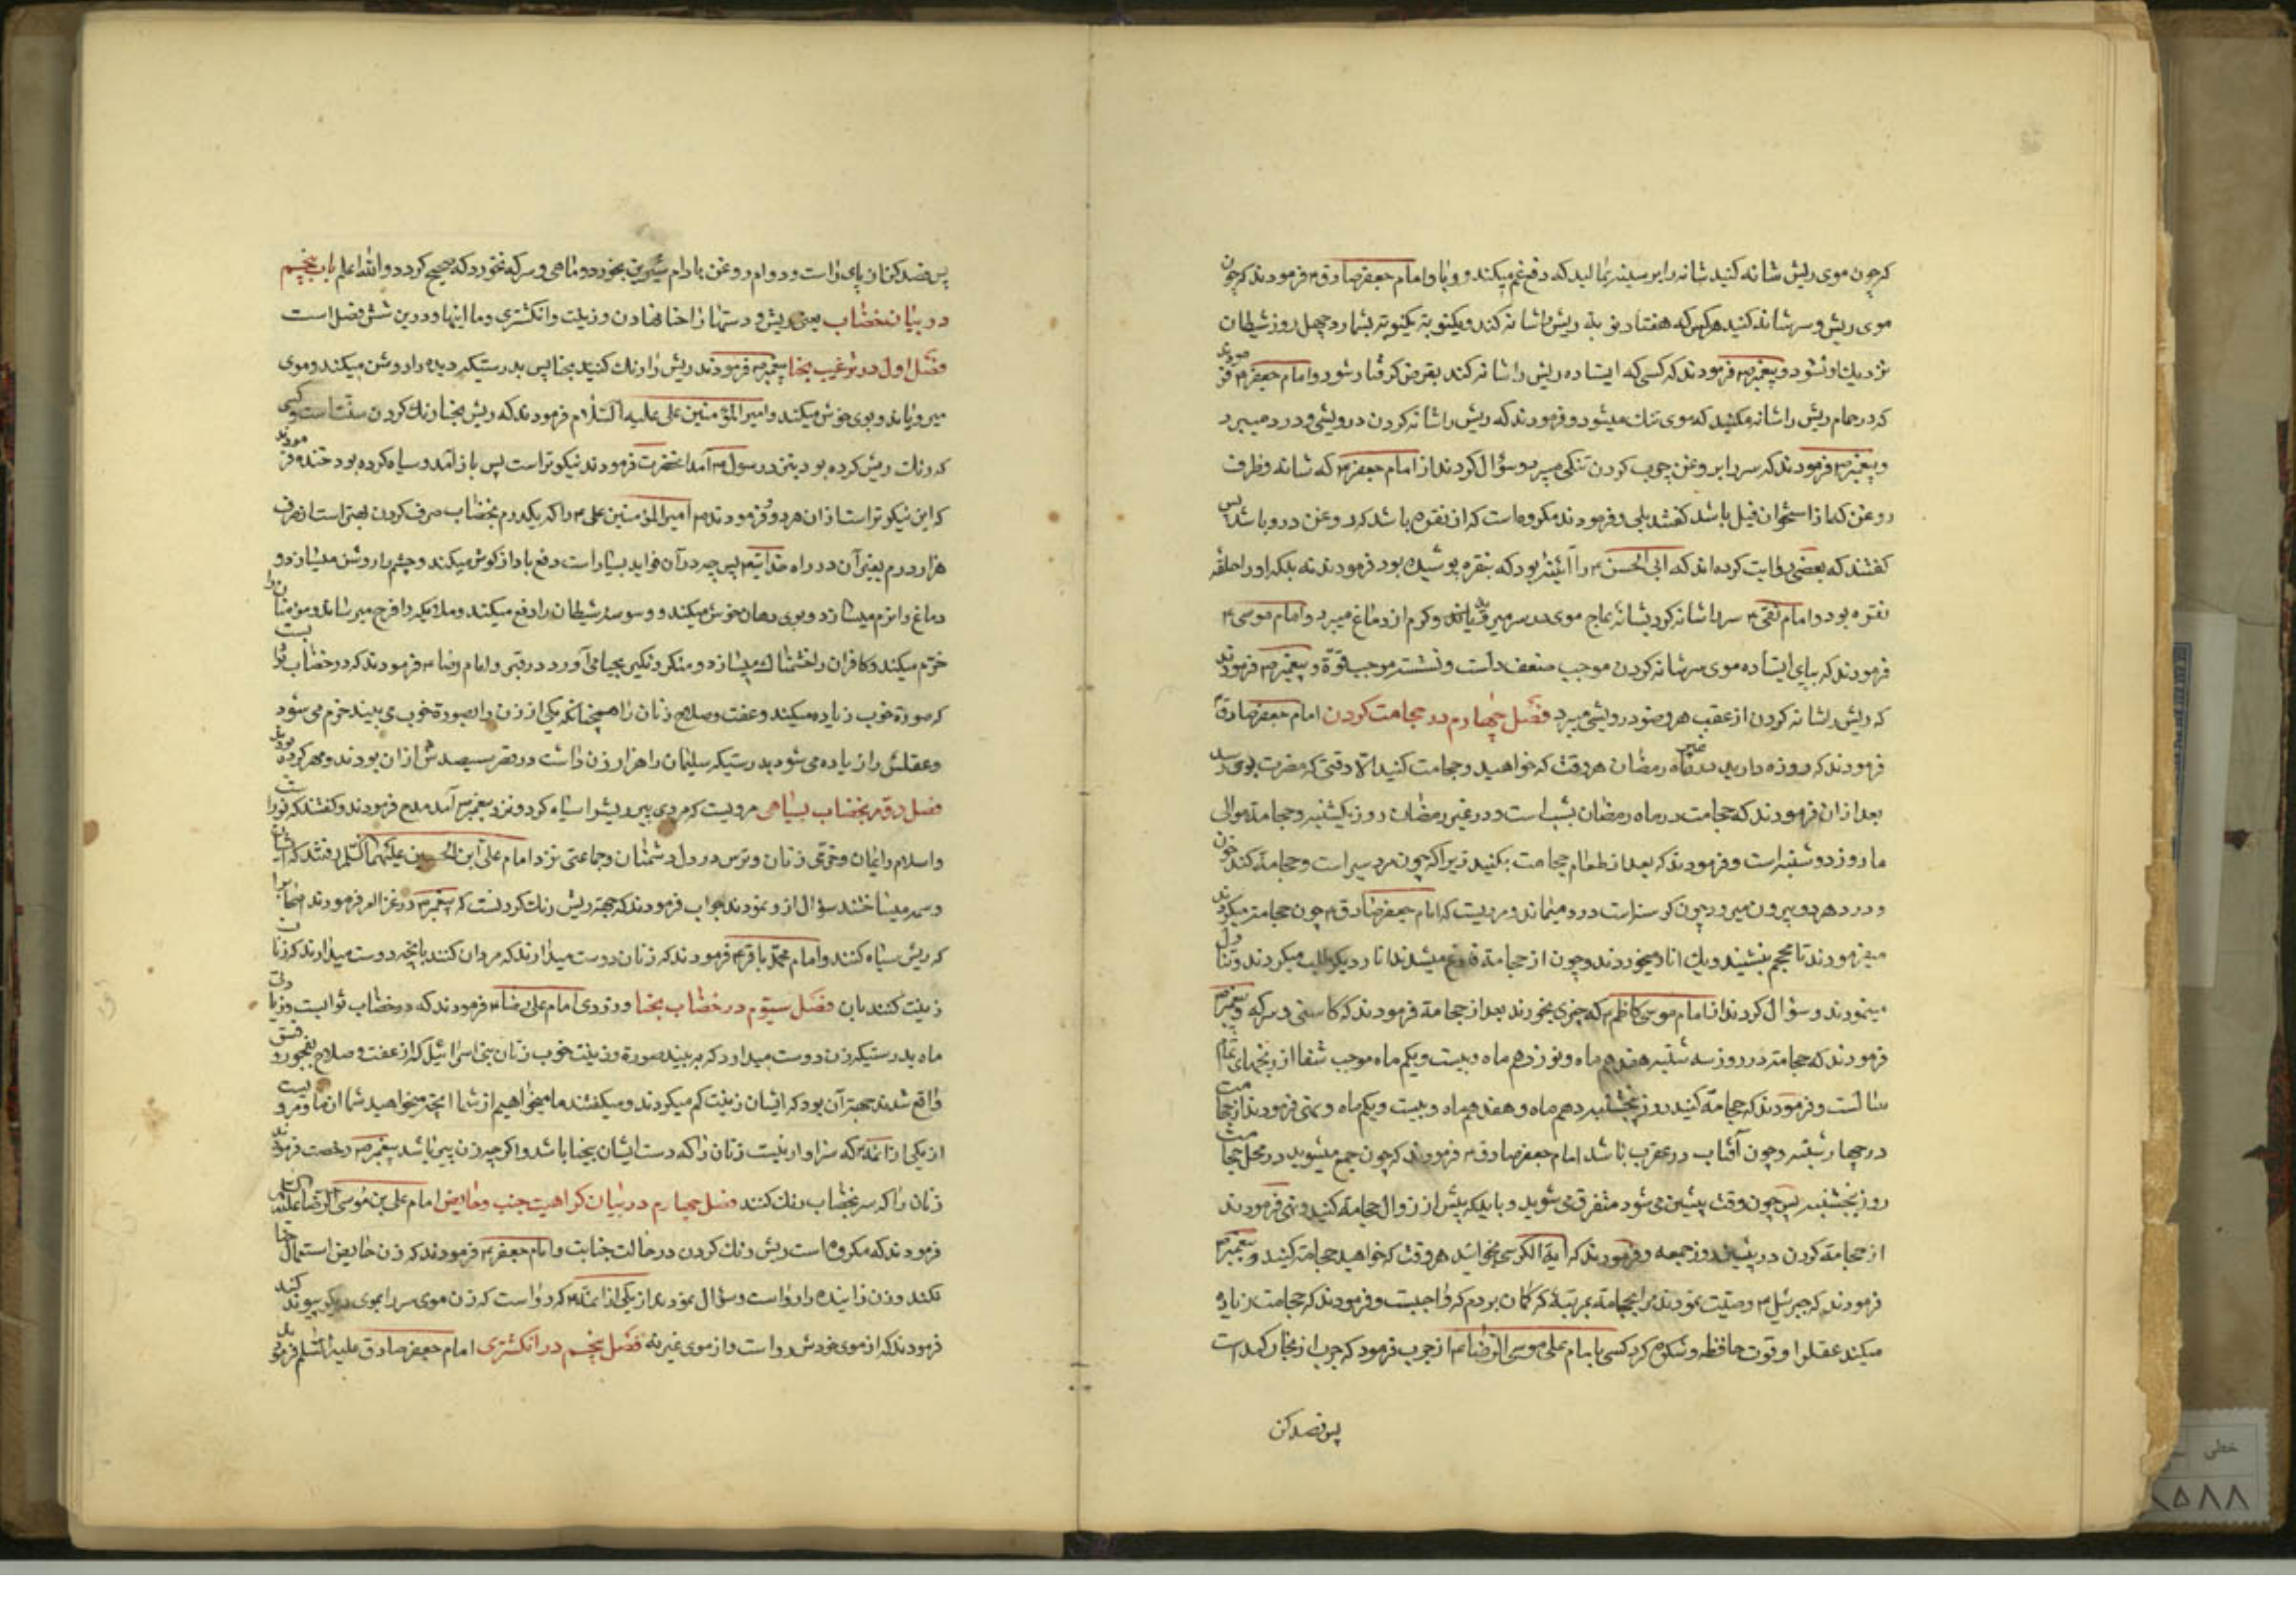 که چون موی ریش شانه کنید شانه را بر سینه بمالید که دفع غم میکند و وبا و امام جعفر صادق ۴ فرمودند که چون
موی ریش و سر شانه کنید هرکس که هفتاد نوبه ریش شانه کند و یکنوبه یکنوبه بشمارد چهل روز شیطان
نزدیك او نشود و پیغمبر ص فرمودند که کسی که ایستاده ریش را شانه کند بقرض گرفتار شود و امام جعفر ۴ فرمودند
که در حمام ریش را شانه مکنید که موی تنك میشود و فرمودند که ریش را شانه کردن درویشی و درد میبرد
و پیغمبر ص فرمودند که سر را بروغن چوب کردن تنگی میبرد و سؤال کردند از امام جعفر ۴ که شانه و ظرف
روغن که از استخوان فیل باشد گفتند بلی و فرمودند مکروه است که از نقره باشد که روغن درو باشد پس
گفتند که بعضی روایت کرده اند که ابی الحسن ۴ را آئینه بود که بنقره پوشیده بود فرمودند نه بلکه او را حلقه
نقره بود و امام نقی ۴ سر را شانه کرد بشانه عاج موی در سر میرویاند و کرم از دماغ میبرد و امام موسی ۴
فرمودند که بپای ایستاده موی سر شانه کردن موجب ضعف دلست و نشسته موجب قوّة و پیغمبر ص فرمودند
که ریش شانه کردن از عقب هر وضو درویشی میبرد فصل چهارم در حجامت کردن امام جعفر صادق ۴
فرمودند که روزه دارید در غیر ماه رمضان هر وقت که خواهید و حجامت کنید الا وقتی که مضرت بوی رسد
بعد از آن فرمودند که حجامت در ماه رمضان بشب است و در غیر رمضان روز یکشنبه و حجامة موالی
ما روز دوشنبه است و فرمودند که بعد از طعام حجامت بکنید زیرا که چون مرد سیر است و حجامة کند خون
و درد هر دو بیرون میرود چون گرسنه است درد میماند و مرویست که امام جعفر صادق ۴ چون حجامة میکردند
میفرمودند تا محجم بنشیند و یك انار میخوردند و چون از حجامة فارغ میشدند انار دیگر طلب میکردند و تناول
مینمودند و سؤال کردند از امام موسی کاظم ۴ که چیزی بخورند بعد از حجامة فرمودند که کاسنی و سرکه و پیغمبر ص
فرمودند که حجامة در روز سه شنبه هفدهم ماه و نوزدهم ماه و بیست و یکم ماه موجب شفا از رنجهای تمام
سالست و فرمودند که حجامة کنید روز پنجشنبه دهم ماه و هفدهم ماه و بیست و یکم ماه و نهی فرمودند از حجامت
در چهارشنبه و چون آفتاب در عقرب باشد امام جعفر صادق ۴ فرمودند که چون جمع میشوید در محل حجامت
روز پنجشنبه پس چون وقت پیشین می شود متفرق می شوید و باید که پیش از زوال حجامة کنید و نهی فرمودند
از حجامة کردن در پیشین روز جمعه و فرمودند که آیة الکرسی بخوانید هر وقت که خواهید حجامة کنید و پیغمبر ص
فرمودند که جبرئیل ۴ وصیّت نمودند مرا بحجامة بمرتبهٔ که گمان بردم که واجبست و فرمودند که حجامت زیاده
میکند عقل را و قوت حافظه و شکوه کرد کسی با امام علی موسی الرضا ۴ از جرب فرمود که جرب از بخار کبد است
پس فصد کن
پس فصد کن از پای راست و دو درم روغن بادام شیرین بخور و ماهی و سرکه نخورد که صحیح گردد والله اعلم باب پنجم
در بیان خضاب یعنی ریش و دستها را حنا نهادن و زینت و انکشتری و ما اینها و درین شش فصل است
فصل اول در ترغیب بحنا پیغمبر ص فرمودند ریش را رنك کنید بحنا پس بدرستیکه دیده را روشن میکند و موی
میرویاند و بوی خوش میکند و امیر المؤمنین علی علیه السّلام فرمودند که ریش بحنا رنك کردن سنّت است و کسی
که رنك ریش کرده بود بنزد رسول ص آمد آنحضرت فرمودند نیکوتر است پس باز آمد و سیاه کرده بود خنده فرمودند
که این نیکوتر است از آن هر دو و فرمودند ص امیر المؤمنین علی ۴ را که یکدرم بخضاب صرف کردن بهتر است از صرف
هزار درم بغیر آن در راه خدایتعالی پس چه در آن فواید بسیار است دفع باد از گوش میکند و چشم را روشن میسازد و
دماغ را نرم میسازد و بوی دهان خوش میکند و وسوسه شیطان را دفع میکند و ملایکه را فرح میرساند و مؤمنان را
خرّم میکند و کافران را خشمناك میسازد و منکر و نکیر بحیا می آورد در قبر و امام رضا ۴ فرمودند که در خضاب ثوابست
که صورة خوب زیاده میکند و عفت و صلاح زنان را همچنانکه یکی از زن را بصورة خوب می بیند خرّم می شود
و عقلش را زیاده می شود بدرستیکه سلیمان را هزار زن داشت در قصر سیصدش از آن بودند و مهر کرده بودند
فصل دوّم بخضاب بسیاهی مرویست که مردی پیر ریش را سیاه کرد و نزد پیغمبر ص آمد مدح فرمودند و گفتند که نور است
و اسلام و ایمان و خرّمی زنان و ترس در دل دشمنان و جماعتی نزد امام علی ابن الحسین علیهما السّلام رفتند که ایشان
وسمه میساختند سؤال ازو نمودند جواب فرمودند که جهة ریش رنك کردنست که پیغمبر ص در غزا امر فرمودند اصحاب را
که ریش سیاه کنند و امام محمّد باقر ۴ فرمودند که زنان دوست میدارند که مردان کنند بآنچه دوست میدارند که زنان
زینت کنند بآن فصل سیّوم در خضاب بحنا و روزی امام علی رضا ۴ فرمودند که در خضاب ثوابست و زیادتی
ماه بدرستیکه زن دوست میدارد که به بیند صورة و زینت خوب زنان بنی اسرائیل که از عفت و صلاح بفجور و فسق
واقع شدند جهة آن بود که ایشان زینت کم میکردند و میگفتند ما میخواهیم از شما آنچه میخواهید شما از ما و مرویست
از یکی از ائمّه ۴ که سزاوار نیست زنان را که دست ایشان بیحنا باشد و اگر چه زن پیر باشد پیغمبر ص رخصت فرمودند
زنان را که سر بخضاب رنك کنند فصل چهارم در بیان کراهیت جنب و حایض امام علی بن موسی الرضا علیه السلام
فرمودند که مکروه است ریش رنك کردن در حالت جنابت و امام جعفر ۴ فرمودند که زن حایض استعمال حنا
نکند و زن زاینده را رواست و سؤال نمودند از یکی از ائمّه ۴ که رواست که زن موی سر را بموی دیگر پیوند کند
فرمودند که از موی خودش رواست و از موی غیر نه فصل پنجم در انکشتری امام جعفر صادق علیه السّلم فرمودند
خطی
۸۵۸۸